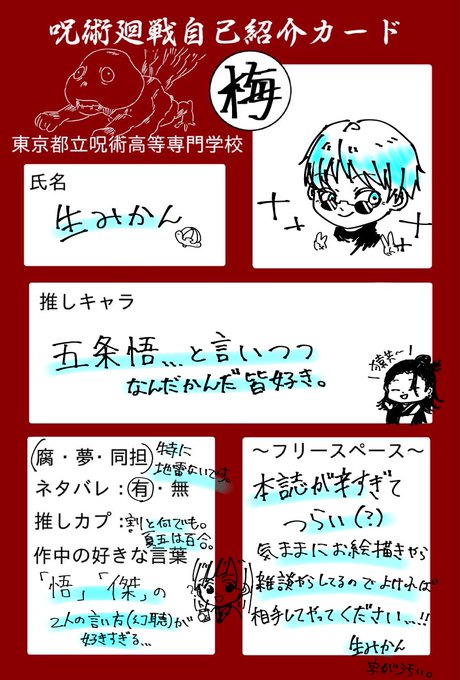 呪術廻戦自己紹介カード
梅
東京都立呪術高等専門学校
氏名
生みかん
推しキャラ
五条悟、、、と言いつつ
なんだかんだ皆好き。
猿共〜!
腐・夢・同担
特に
地雷ないです。
ネタバレ:有・無
推しカプ:割と何でも。
夏五は百合。
作中の好きな言葉
「悟」「傑」の
2人の言い方(幻聴)が
好きすぎる...
〜フリースペース〜
本誌が辛すぎて
つらい(?)
気ままにお絵描きやら
雑談やらしてるのでよければ
相手してやってください...!!
生みかん
字がきたない。